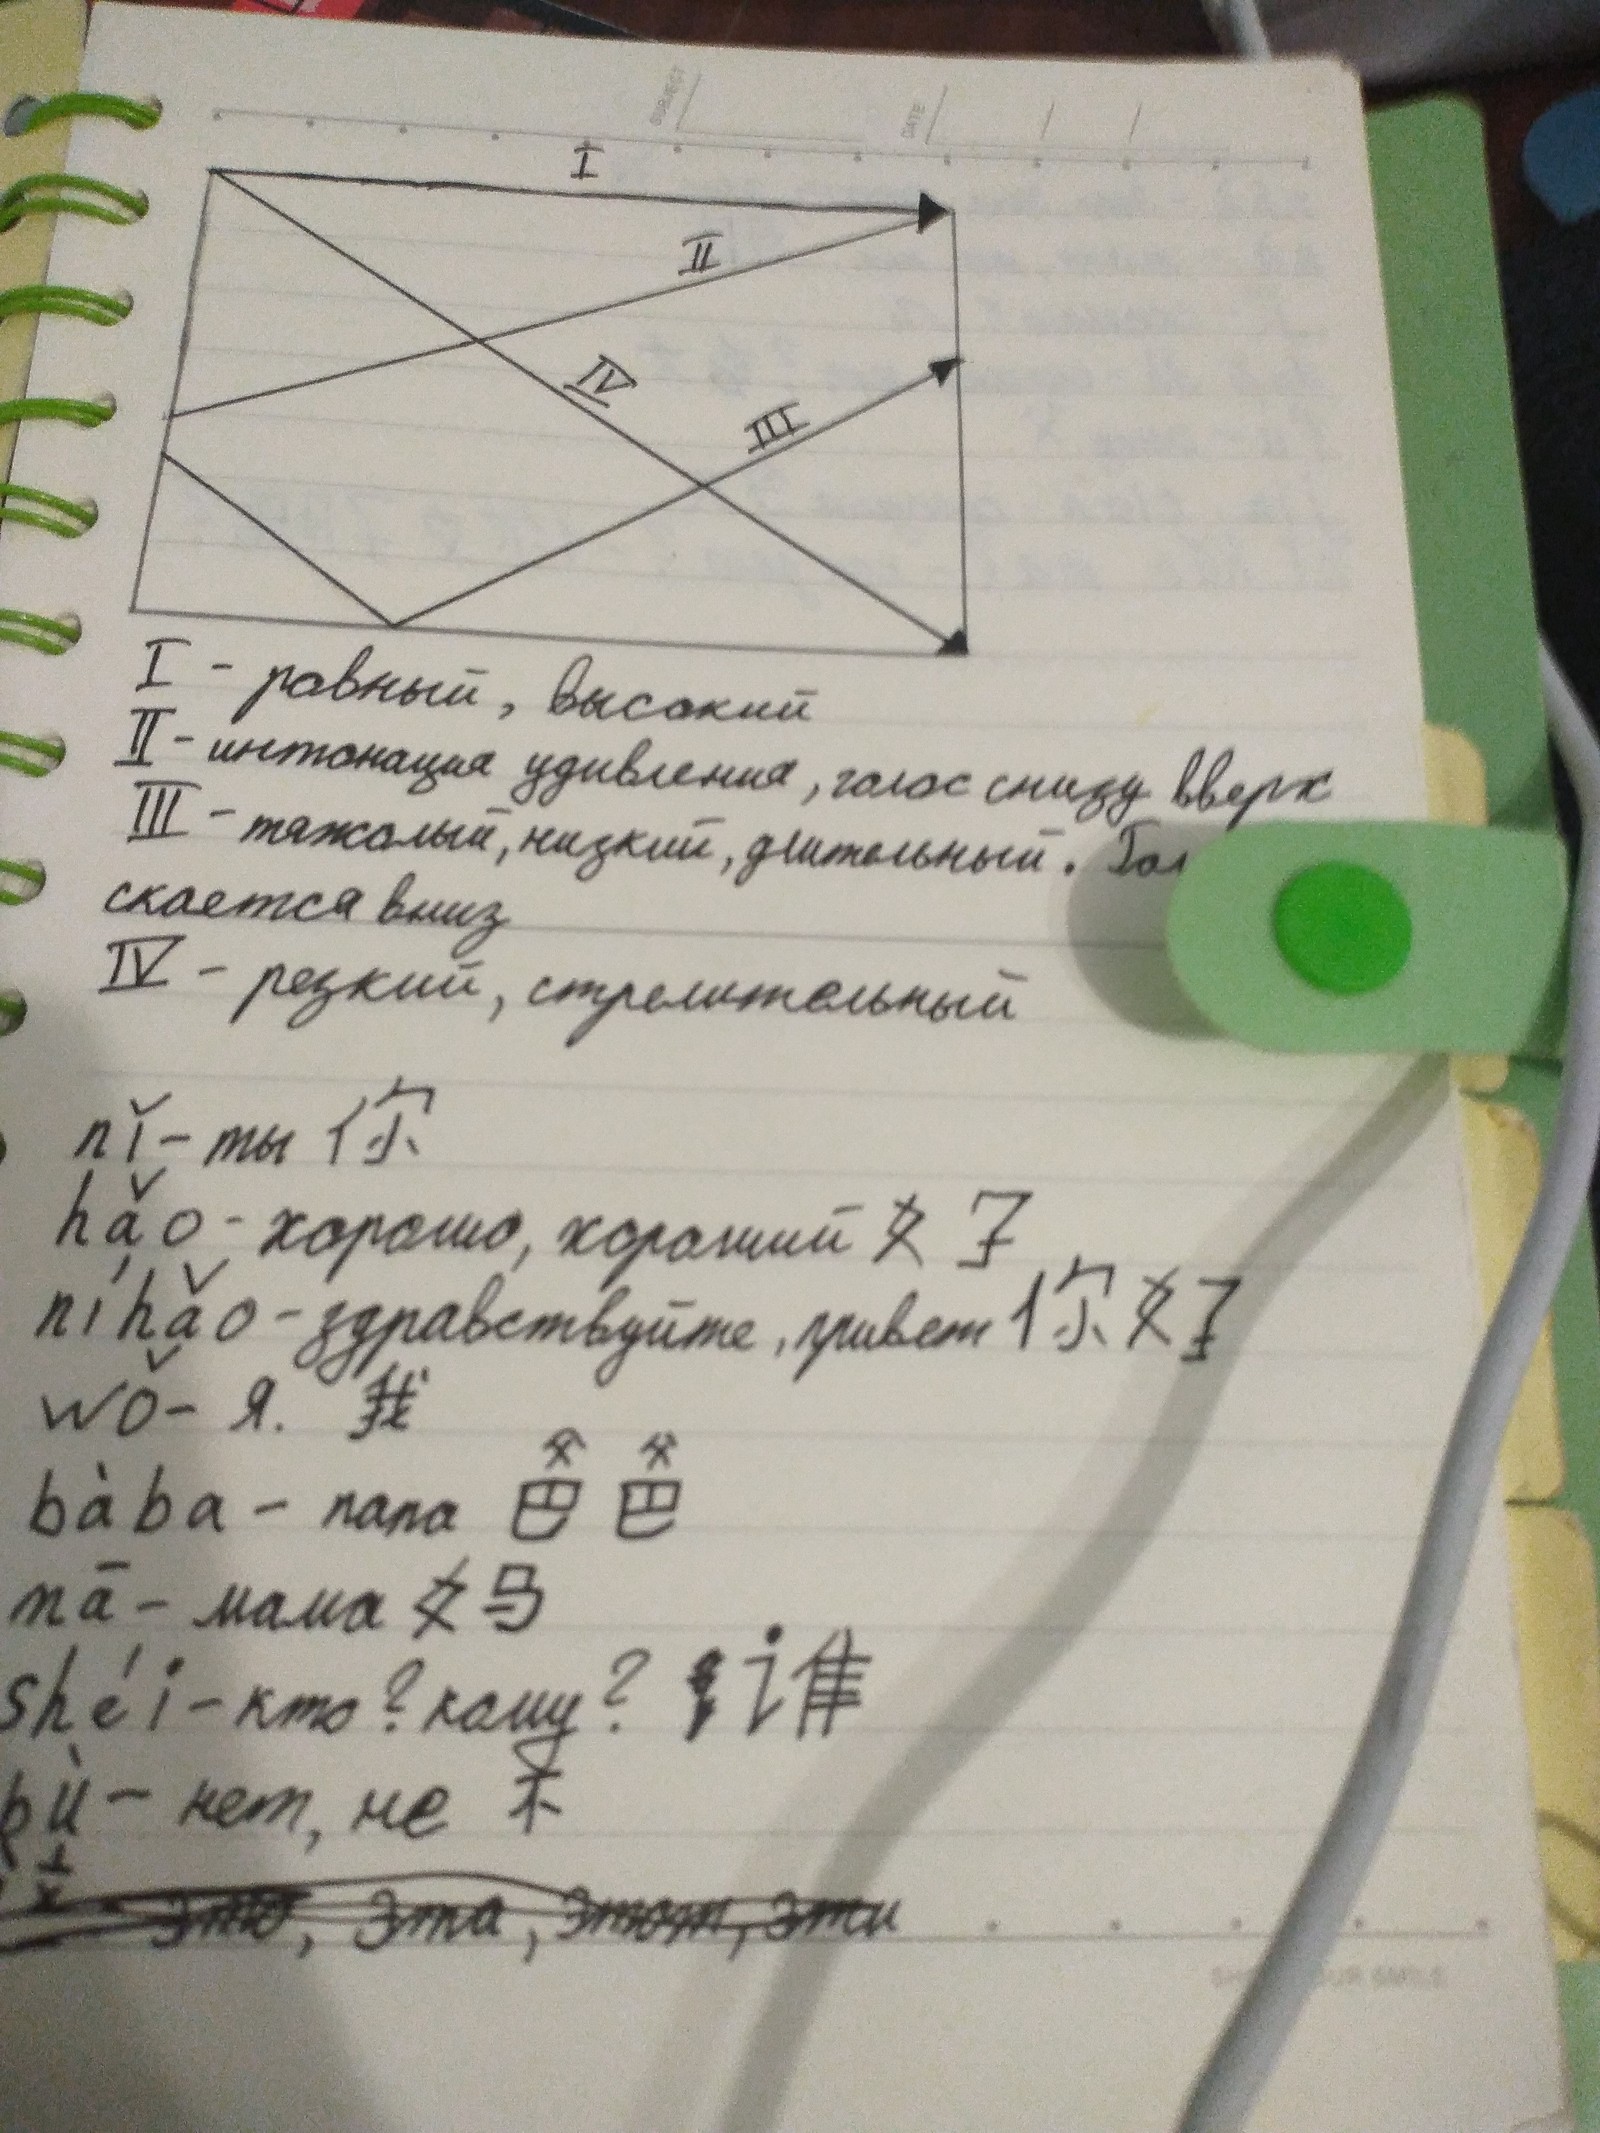 SUBJECT DATE
I
II
IV
III
I - ровный, высокий
II - интонация удивления, голос снизу вверх
III - тяжолый, низкий, длительный.
скается вниз
IV - резкий, стремительный
nǐ - ты 你
hǎo - хорошо, хороший 好
níhǎo - здравствуйте, привет 你好
wǒ - Я. 我
bàba - папа 爸爸
mā - мама 妈
shéi - кто? кому? 谁
bù - нет, не 不
это, эта, этот, эти